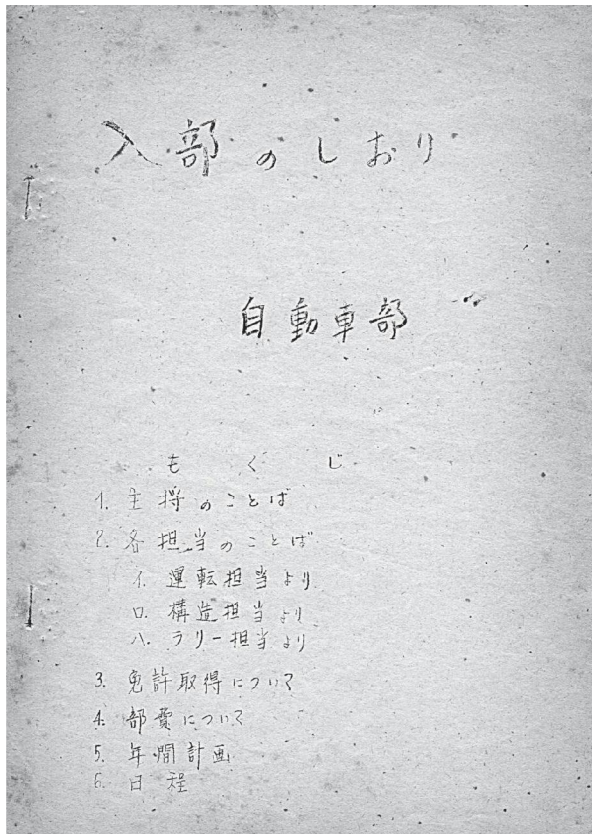 入部のしおり
自動車部
もくじ
1. 主将のことば
2. 各担当のことば
イ. 運転担当より
ロ. 構造担当より
ハ. ラリー担当より
3. 免許取得について
4. 部費について
5. 年間計画
6. 日程